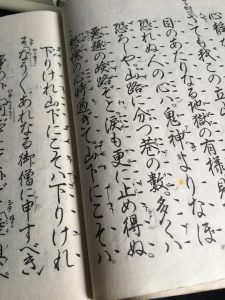 目のあたりなる地獄の有様見
恐れぬ人の心ハ。鬼神よりなほ
恐ろしや。山路に分つ巷の数。多くハ
悪趣の嶮路ぞと。涙も更に止め得ぬ。
心時過ぎて。山下にこそハ。
下りけれ山下にこそハ下りけれ
なう〱あれなる御僧に申すべき